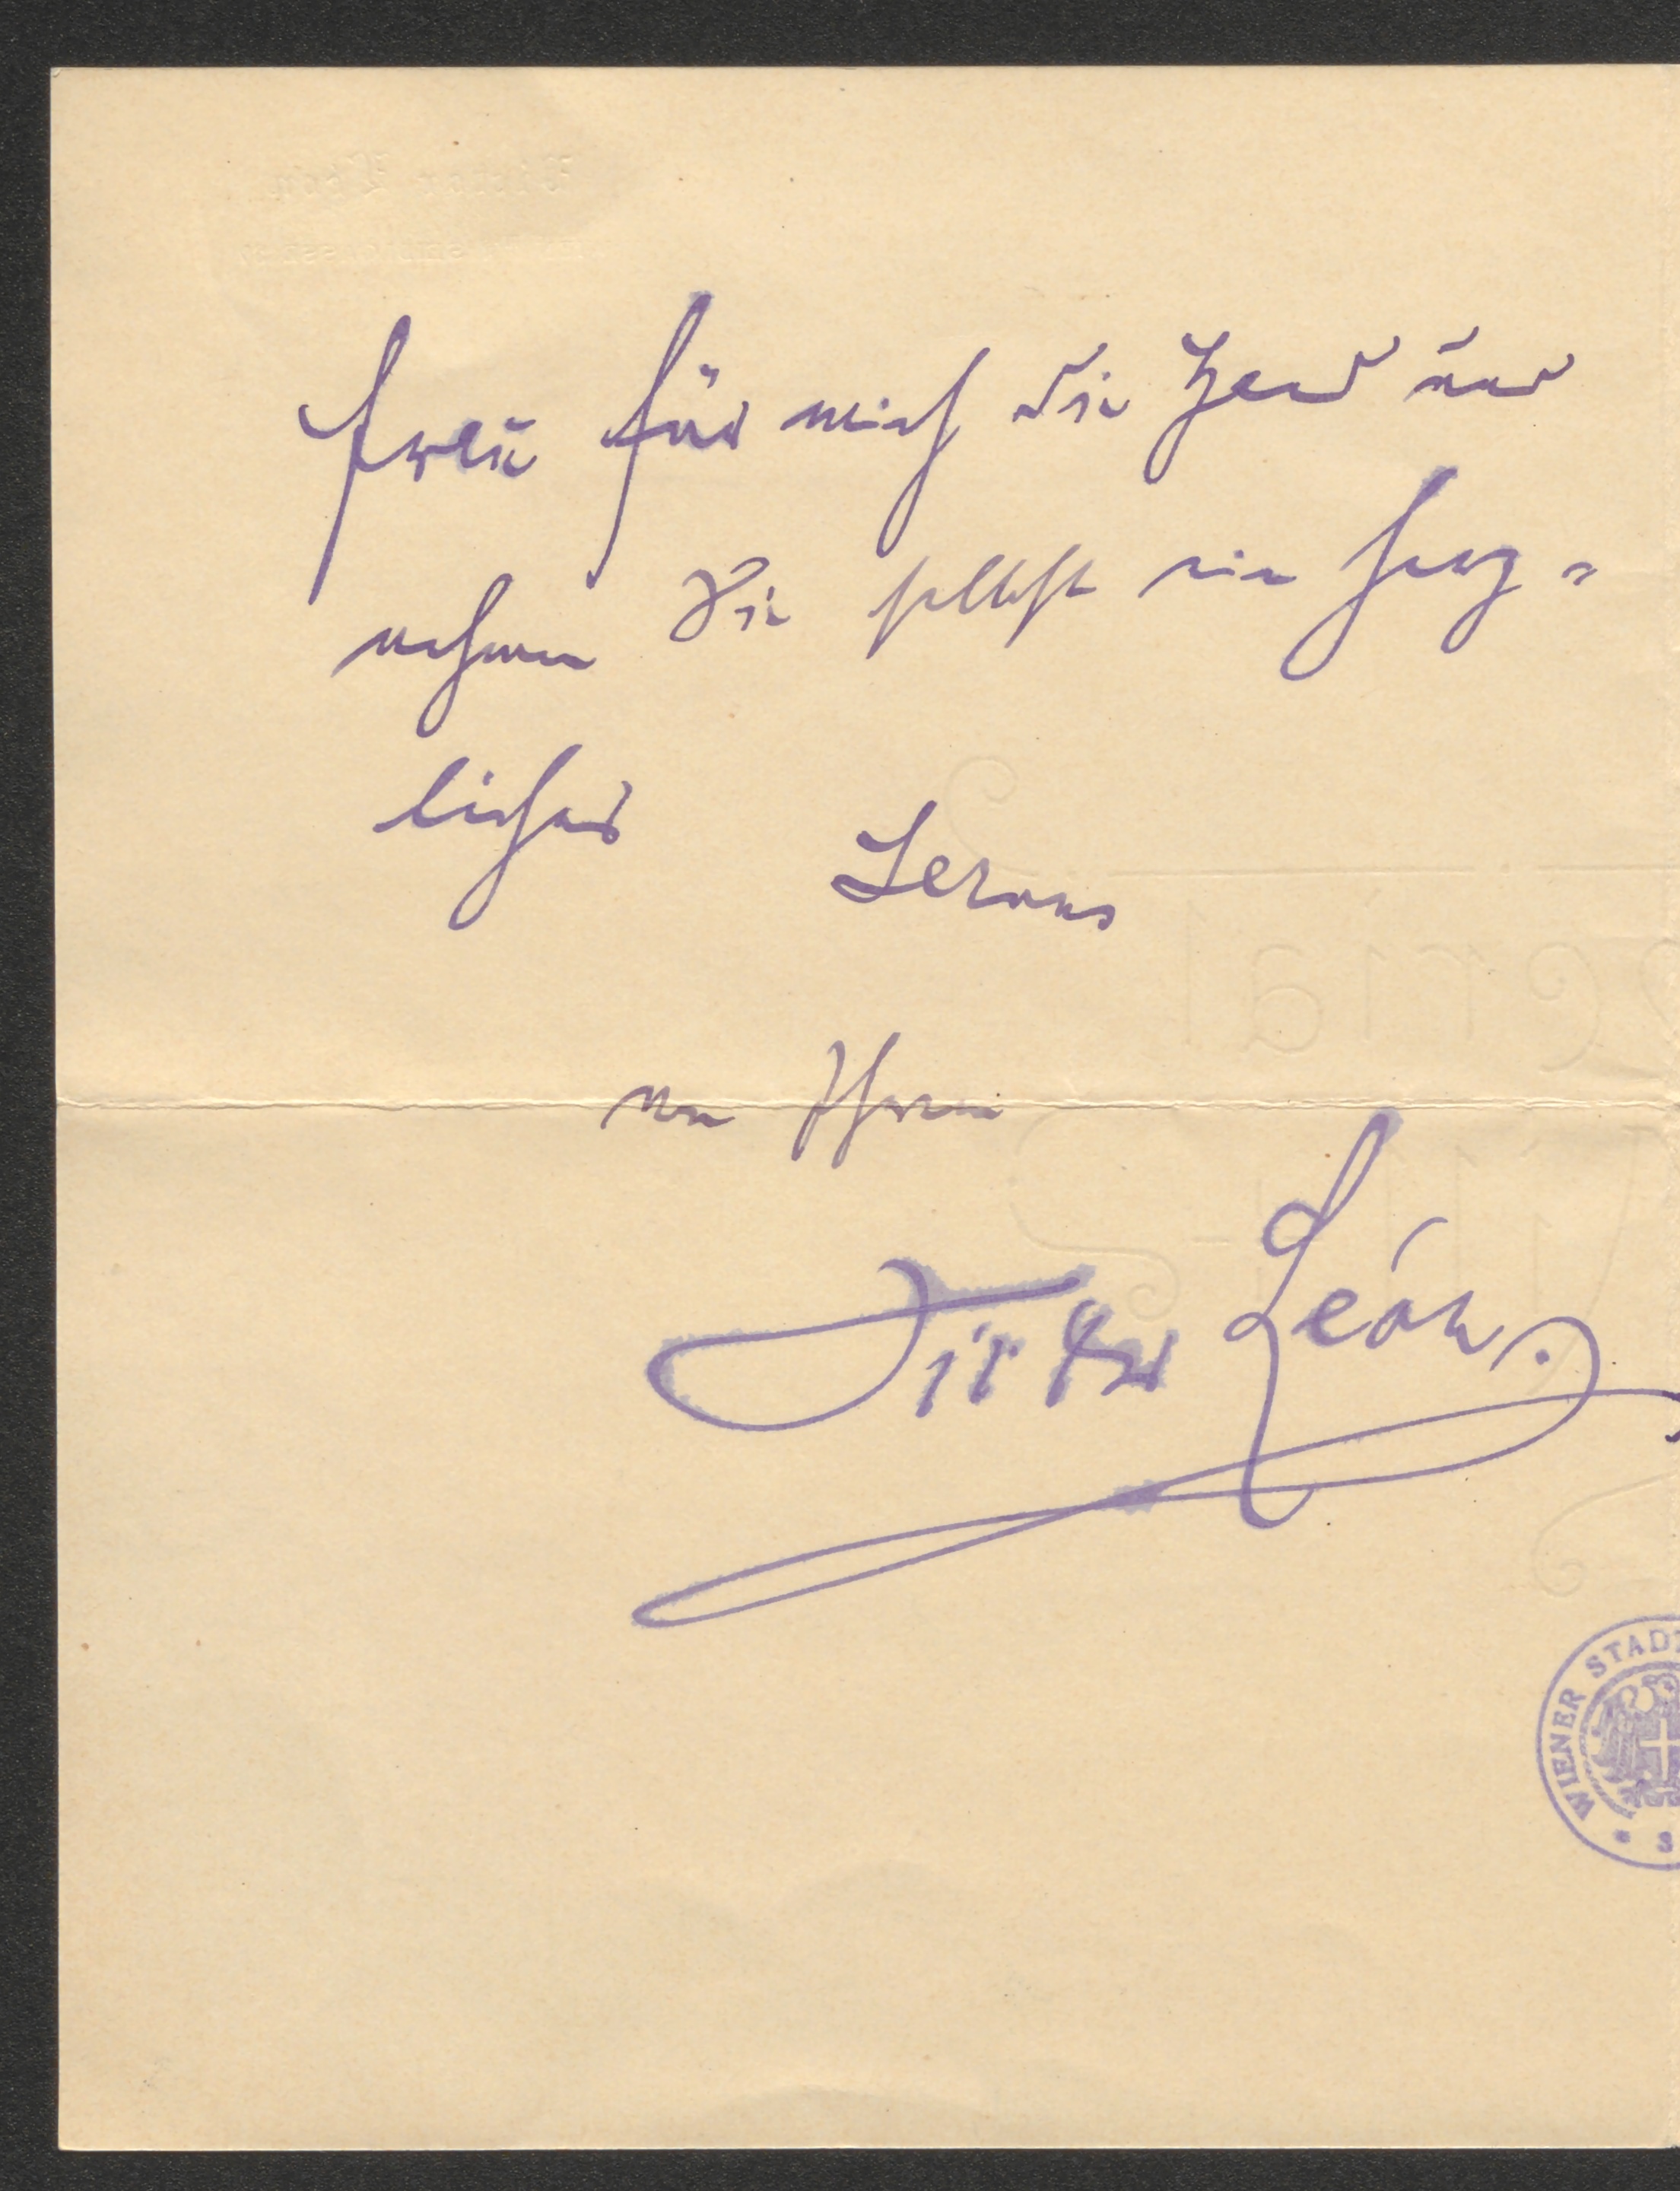 Frau für mich die Hand und
nehmen Sie selbst ein herz=
liches
Servus
von Ihrem
Victor Léon.
WIENER STADT